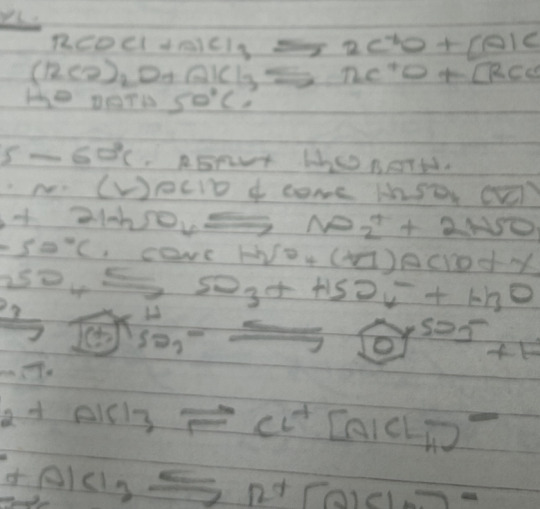 RCOCl + AlCl3 ⇌ RC+O + [AlC
(RCO)2O + AlCl3 ⇌ RC+O + [RCO
H2O BATH 50°C.
5 - 60°C. REFLUX H2O BATH.
(V) ACID & CONC H2SO4 (VI)
+ 2H2SO4 ⇌ NO2+ + 2HSO
-50°C. CONC H2SO4 (VI) ACID +
2SO4 ⇌ SO3 + HSO4- + H3O
⇌ + H SO3- ⇌ SO3- + H
2 + AlCl3 ⇌ Cl+ [AlCl4]-
+ AlCl3 ⇌ R+ [AlCl4]-